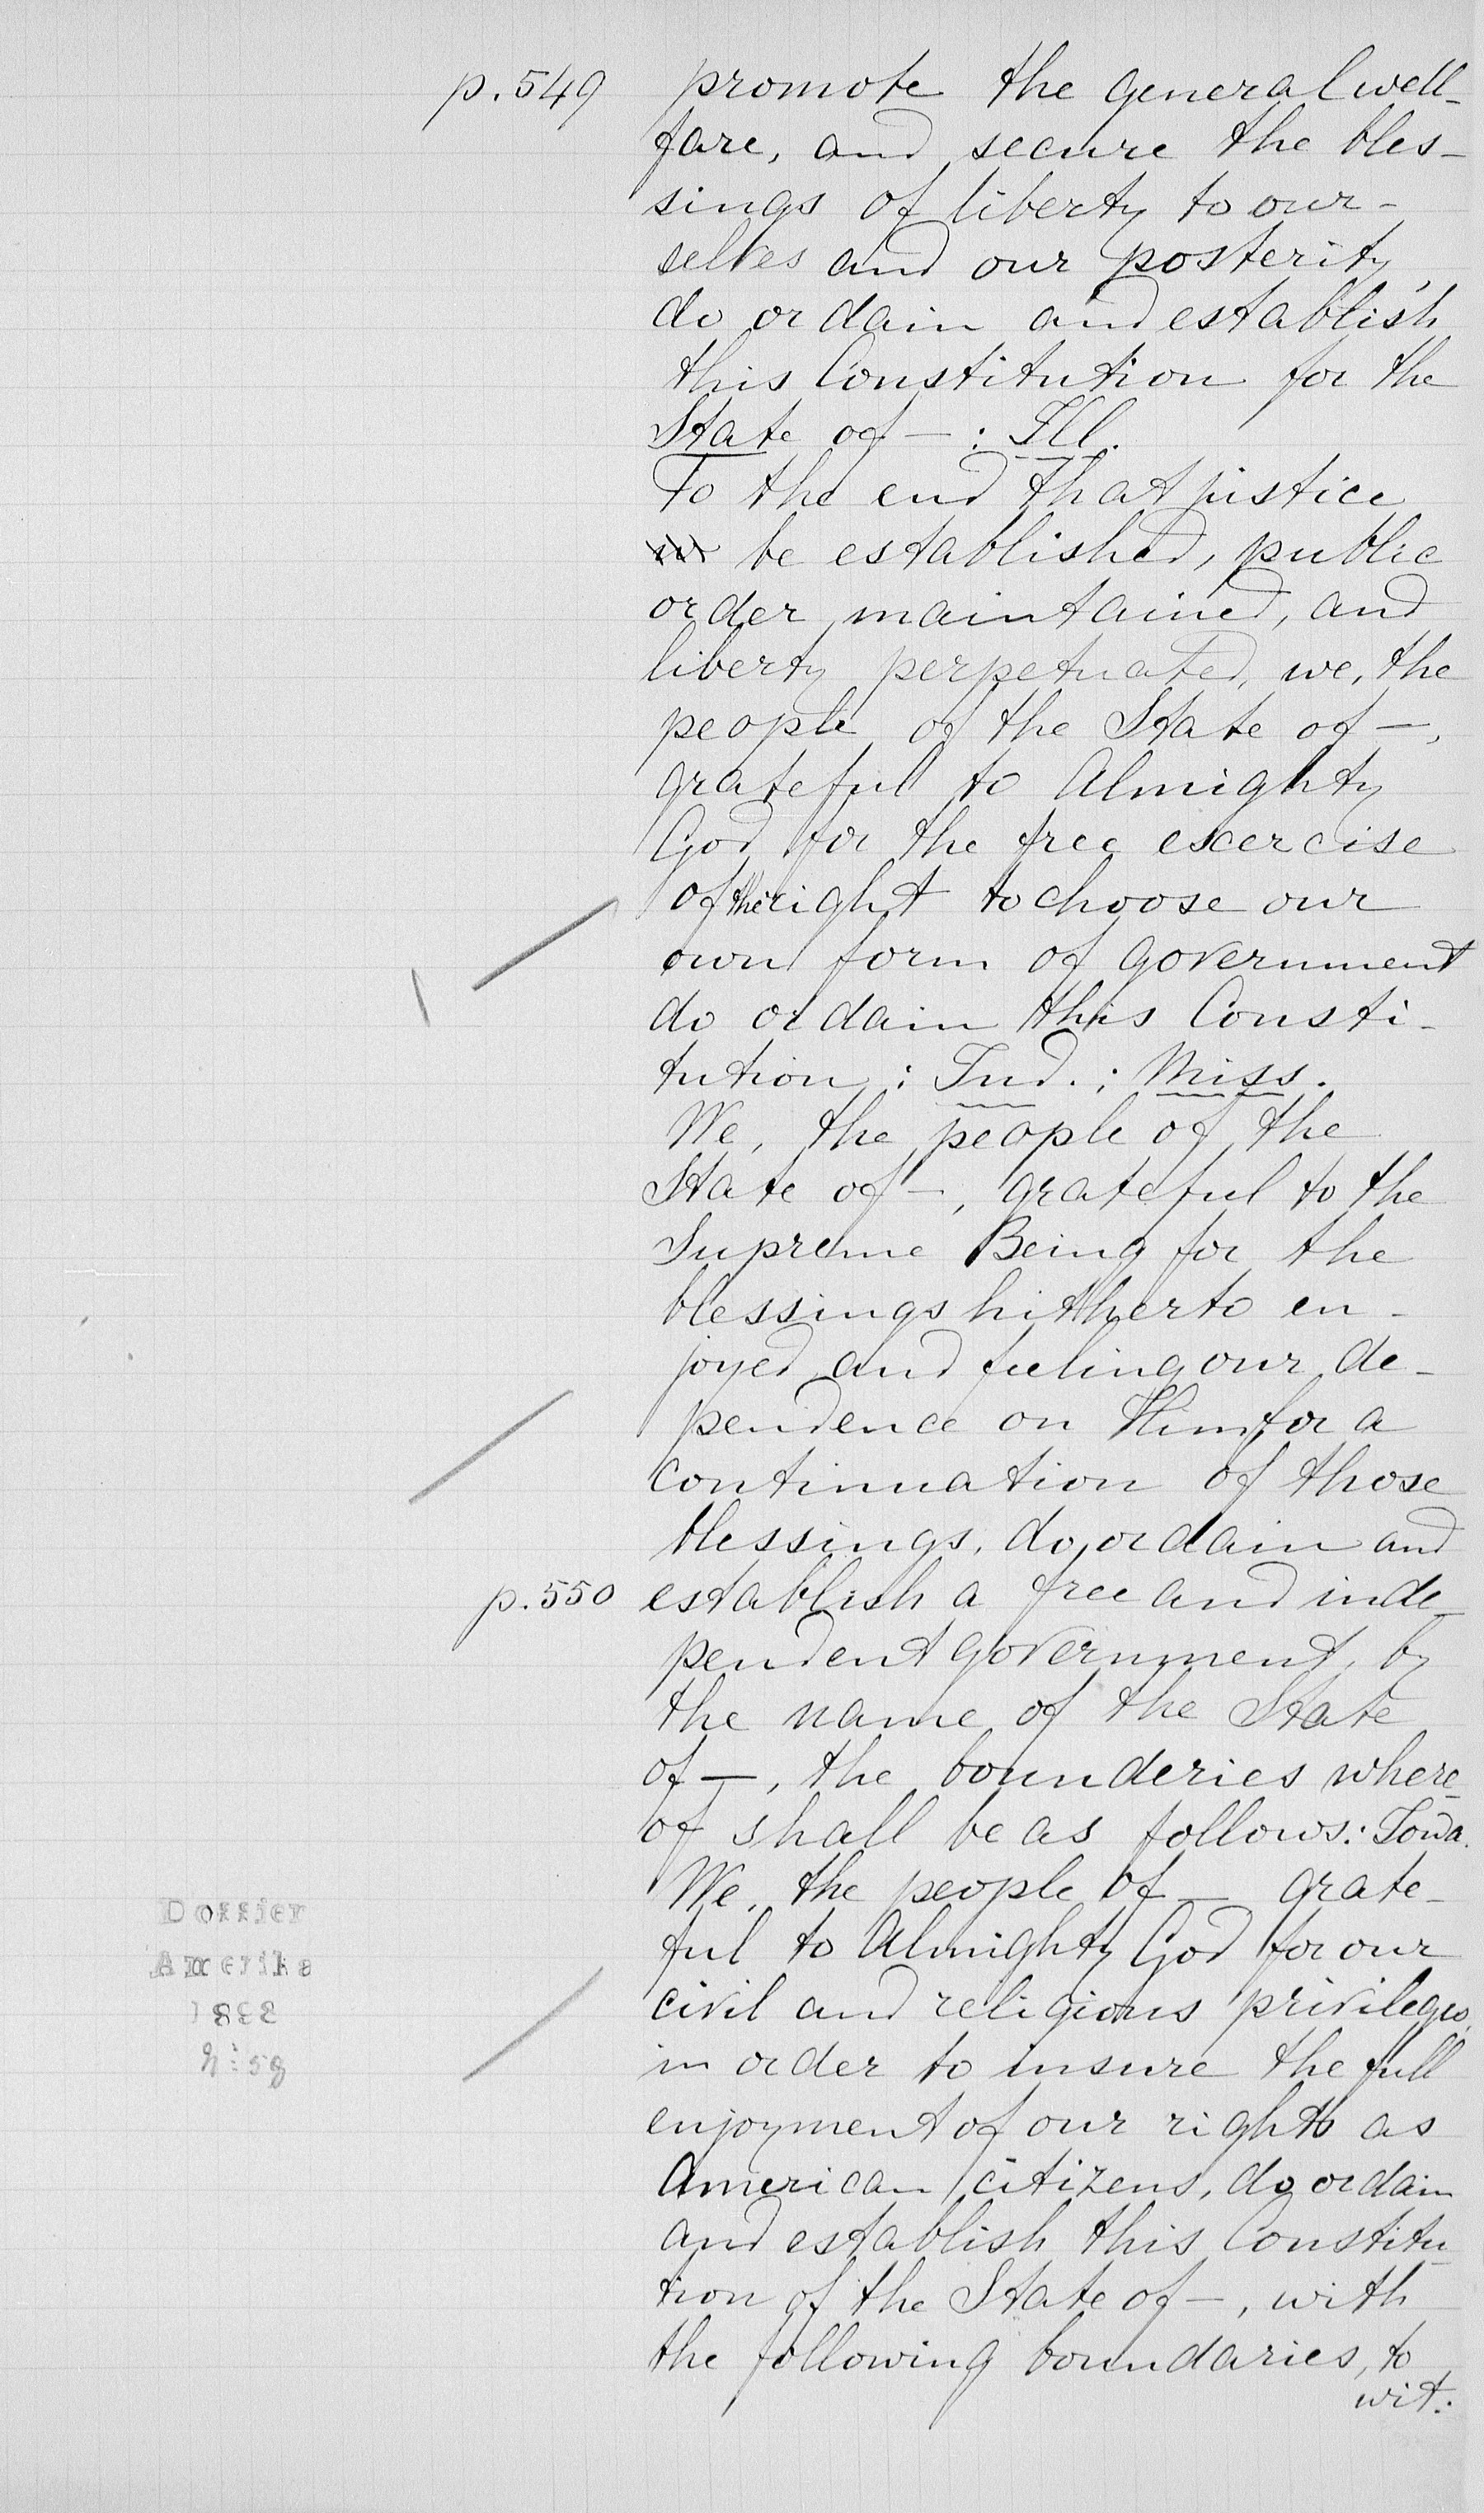 p. 549 promote the general well-
fare, and secure the bles-
sings of liberty to our-
selves and our posterity
do ordain and establish
this Constitution for the
State of — : Ill.
To the end that justice
be established, public
order maintained, and
liberty perpetuated, we, the
people of the State of —,
grateful to Almighty
God for the free excercise
of the right to choose our
own form of government
do ordain this Consti-
tution : Ind. ; Miss.
We, the people of the
State of —, grateful to the
Supreme Being for the
blessings hitherto en-
joyed and feeling our de-
pendence on Him for a
continuation of those
blessings, do ordain and
p. 550 establish a free and inde-
pendent government, by
the name of the State
of —, the bounderies where-
of shall be as follows: Iowa.
We, the people of — grate-
ful to Almighty God for our
civil and religious privileges,
in order to insure the full
enjoyment of our rights as
American citizens, do ordain
and establish this Constitu-
tion of the State of —, with
the following boundaries, to
wit:
Dossier
Amerika